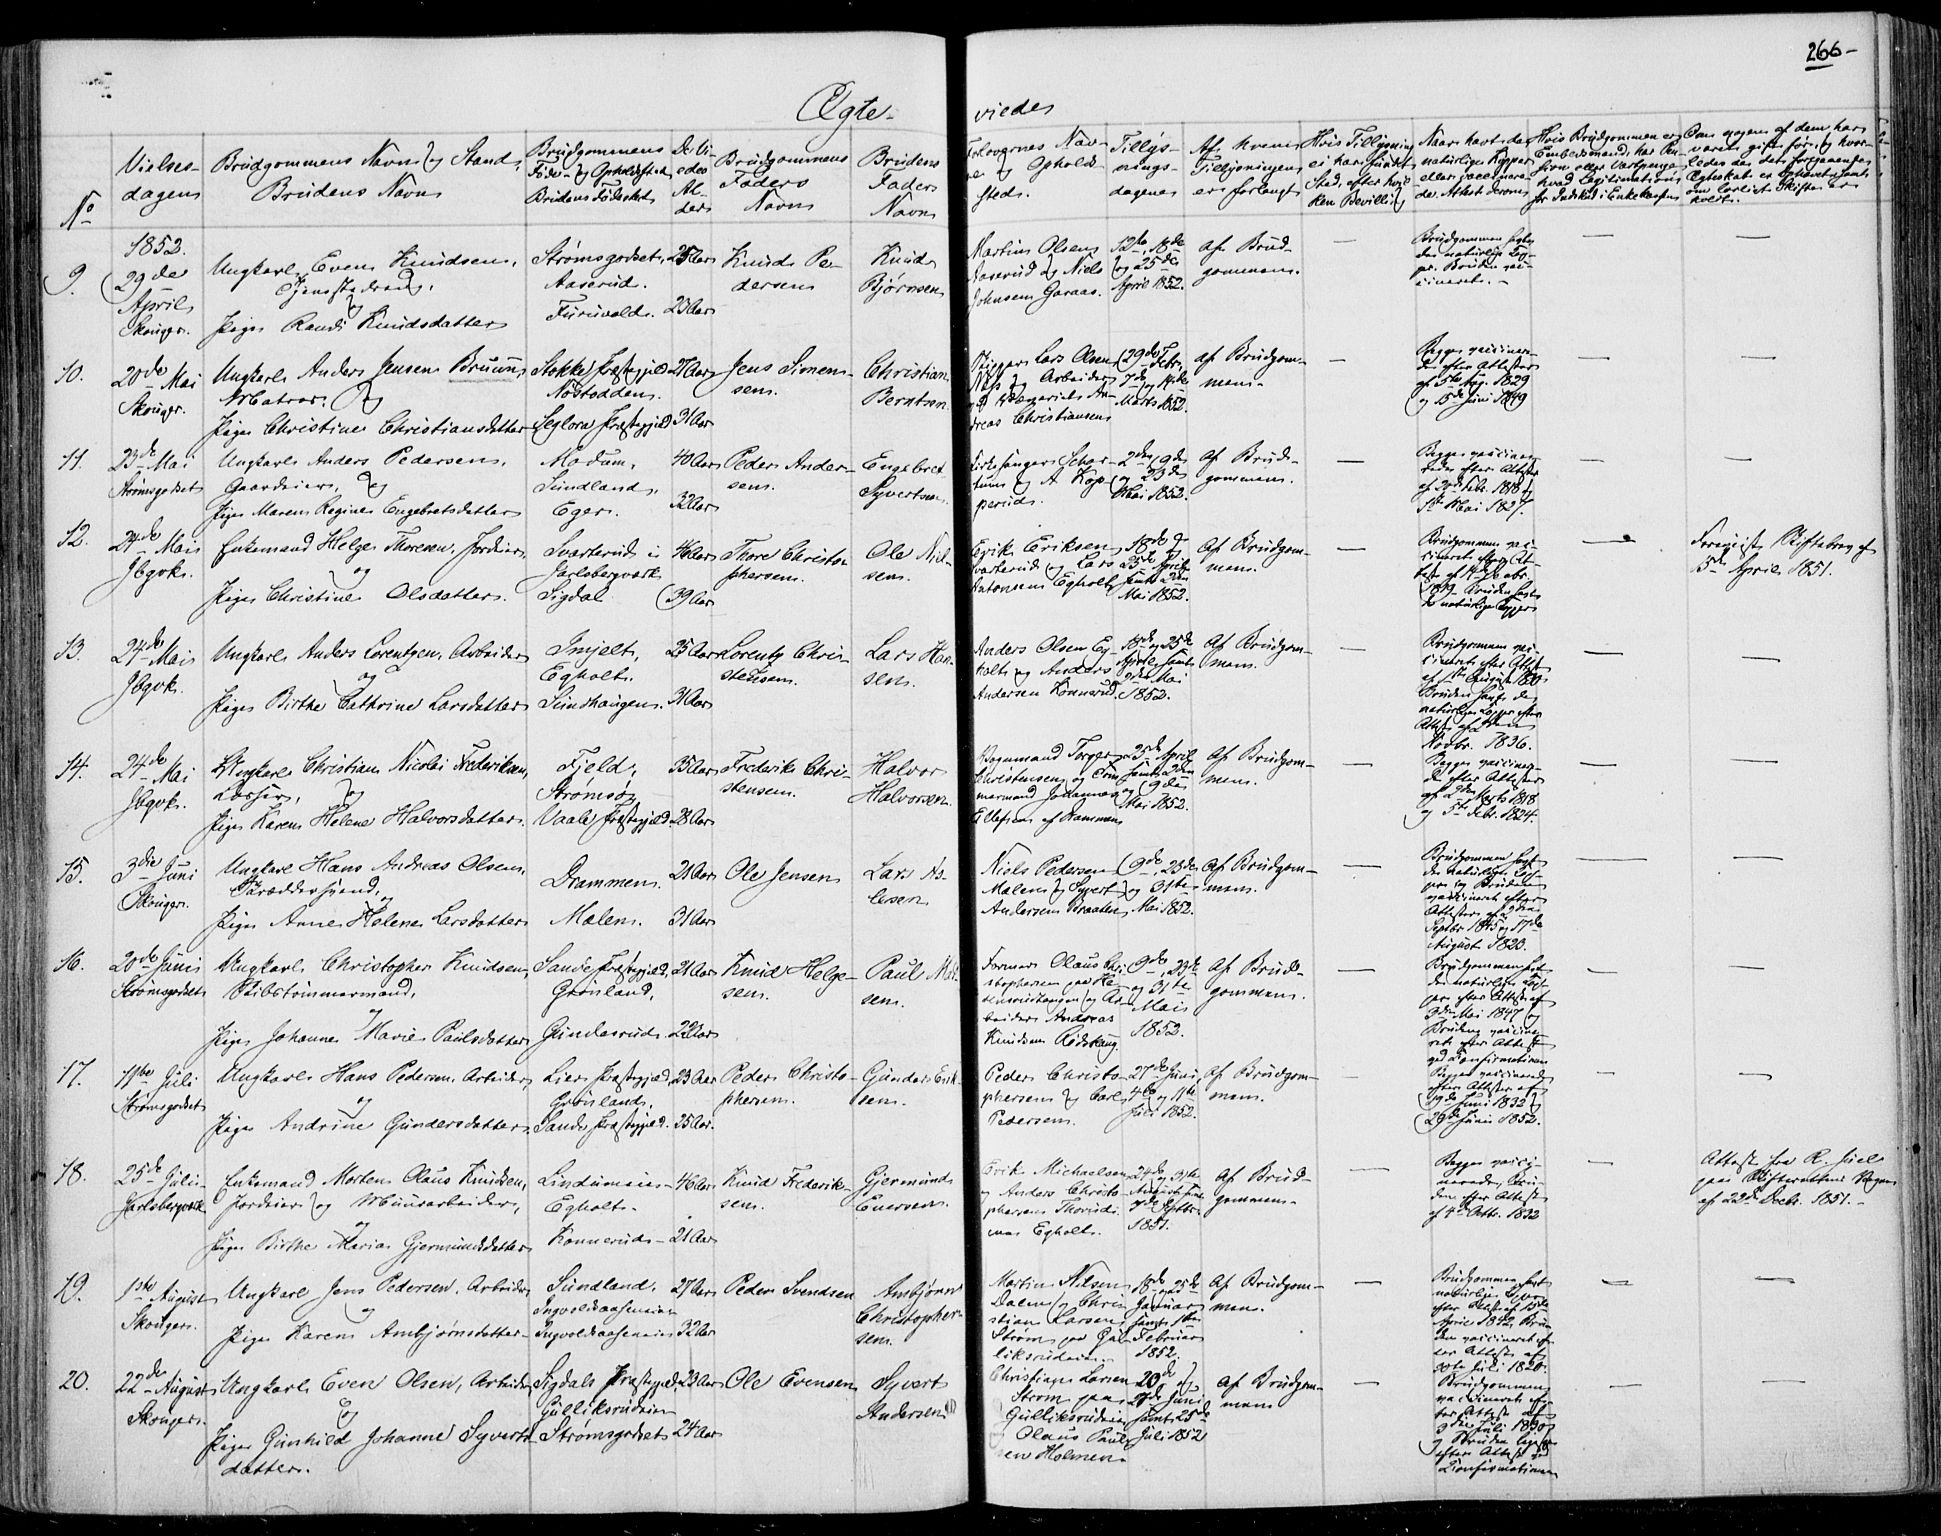 266-
Ægte-
viede
No
Vielses-
dagen
Brudgommens Navn og Stand,
Brudens Navn
Brudgommens
Føde- og Opholdssted
Brudens Fødested
De Vi-
edes
Al-
der
Brudgommens
Faders
Navn
Brudens
Faders
Navn
Forlovernes Nav-
ne og Opholds-
sted.
Tillys-
nings-
dagene
Af hvem
Tillysningen
er forlangt
Hvis Tillysning
ei har fundet
Sted, efter hvil-
ken Bevilling
Naar havt de
naturlige Kopper
eller vaccinere-
de. Attest derom
Hvis Brudgommen er
Embedsmand, har Pen-
sion eller Vartpenge
hvad Legitimation
for Indskud i Enkekassen
Om nogen af dem har
været gift før, og hvor-
ledes da det foregaaende
Ægteskab er ophævet samt
om lovligt Skifte er
holdt.
9.
1852.
29de
April
Skouger.
Ungkarl Even Knudsen,
Tjenestedreng,
og
Pige Randi Knudsdatter
Strømsgodset,
Aaserud.
Furuvald.
25 Aar
23 Aar
Knud Pe-
dersen
Knud
Bjørnsen
Martin Olsen
Aaserud og Niels
Johnsen Garaas.
12te, 18de
og 25de
April 1852.
af Brud-
gommen.
—
Brudgommen havt
de naturlige Kop-
per. Bruden vac-
cineret.-
—
—
10.
20de Mai
Skouger.
Ungkarl Anders Jensen Bruun,
Matros, og
Pige Christine Christiansdatter
Stokke Præstegjeld
Nøstodden.
Seglora Præstegjeld
27 Aar
31 Aar
Jens Simen-
sen.
Christian
Berntsen
Skipper Lars Olsen
Næs og Arbeider
An-
dreas Christiansen
29de Febr,
7de og 14de
Marts 1852.
af Brudgom-
men-
—
Begge vaccinere-
de efter Attester
af 5te Aug. 1829
og 15de Juni 1849
—
—
11.
23de Mai
Strømsgodset
Ungkarl Anders Pedersen,
Gaardeier, og
Pige Maren Regine Engebretsdatter
Modum,
Sundland,
Eger.
40 Aar
32 Aar
Peder Ander-
sen.
Engebret
Syvertsen.
Kirkesanger Schar-
tum og A Kop-
perud.
2den, 9de
og 23de
Mai 1852.
af Brud-
gommen.
—
Begge vaccine-
rede efter Attester
af 20de Febr. 1818 og
1ste Mai 1827.
—
—
12.
24de Mai
Jbgvk.
Enkemand Helge Thoresen, Jordeier,
og
Pige Christine Olsdatter.
Svarterud i
Jarlsbergværk
Sigdal
46 Aar
39 Aar
Thore Christo-
phersen.
Ole Niel-
sen.
Erik Eriksen
Svarterud og Lars
Antonsen Egholt
18de og
25de April
samt 2den
Mai 1852.
Af Brudgom-
men.
—
Brudgommen vac-
cineret efter At-
test af 14de Febr.
1819. Bruden havt
de naturlige Kopper
—
Foreviist Skiftebrev af
5te April 1851.
13.
24de Mai
Jbgvk.
Ungkarl Anders Lorentzen, Arbeider
og
Pige Birthe Cathrine Larsdatter
Imjelt,
Egholt.
Sundhaugen.
25 Aar
31 Aar
Lorentz Chri-
stensen.
Lars Han-
sen.
Anders Olsen Eg-
holt og Anders
Andersen Konnerud.
18de og 25de
April samt
2den Mai
1852.
Af Brudgom-
men.
—
Brudgommen vac-
cineret efter Attest
af 1ste August 1830
Bruden havt de
naturlige Kopper efter
Attest af 2den
Novbr. 1836.
—
—
14.
24de
Mai
Jbgvk.
Ungkarl Christian Nicolai Frederiksen,
Losser, og
Pige Karen Helene Halvorsdatter.
Fjeld,
Strømsø,
Vaale Præstegjeld.
35 Aar
28 Aar
Frederik Chri-
stensen.
Halvor
Halvorsen.
Vognmand Torger
Christensen og Tøm-
mermand Johannes
Ellefsen af Drammen
25de April
samt 2den
og 9de
Mai 1852.
Af Brudgom-
men.
—
Begge vaccinere-
de efter Attester
af 2den Marts 1818
og 5te Febr. 1824.
—
—
15.
3die Juni
Skouger.
Ungkarl Hans Andreas Olsen,
Skræddersvend,
og
Pige Anne Helene Larsdatter
Drammen.
Malen.
21 Aar
31 Aar
Ole Jensen
Lars As-
lesen
Niels Pedersen
Malen og Syvert
Andersen Braaten
9de, 23de
og 31te
Mai 1852.
af Brudgom-
men.
—
Brudgommen havt
de naturlige Kop-
per og Bruden
vaccineret efter
Attester af 2den
Septbr 1845 og 17de
August 1823.
—
—
16.
20de Juni
Strømsgodset
Ungkarl Christopher Knudsen,
Skibstømmermand,
og
Pige Johanne Marie Paulsdatter
Sande Præstegjeld,
Grønland,
Gundesrud.
21 Aar
22 Aar
Knud Helge-
sen.
Paul Mad-
sen.
Former Olaus Chri-
stophersen paa Ha-
og Ar-
beider Andreas
Knudsen Rødskaug.
9de, 23de
og 31te
Mai
1852.
Af Brud-
gommen.
—
Brudgommen hav-
de naturlige Kop-
per efter Attest af
3die Mai 1847 og
Bruden vaccine-
ret efter Attest
ved Confirmationen
—
—
17.
11te Juli
Strømsgodset
Ungkarl Hans Pedersen, Arbeider,
og
Pige Andrine Gundersdatter.
Lier Præstegjeld,
Grønland,
Sande Præstegjeld.
23 Aar
25 Aar.
Peder Christo-
phersen.
Gunder Erik-
sen.
Peder Christo-
phersen og Carl
Pedersen.
27de Juni,
4de og 11te
Juli 1852.
Af Brudgom-
men.
—
Begge vaccinerede
efter Attester af
19de Juni 1832 og
29de Juni 1852.
—
—
18.
25de Juli
Jarlsbergværk
Enkemand Morten Olaus Knudsen,
Jordeier og Muurarbeider,
og
Pige Birthe Maria Gjermundsdatter
Lindumeier-
Egholt.
Konnerud-
46 Aar
21 Aar
Knud Frederik-
sen.
Gjermund
Evensen.
Erik Michaelsen
og Anders Christo-
phersen Thorud.
Egholt.
24de og 31te
August samt
7de Septbr.
1851.
Af Brud-
gommen-
—
Begge vacci-
nerede, Bru-
den efter Attest
af 4de Octbr. 1832
—
Attest fra R. Juel
paa Skifterettens Vegne
af 22de Decbr. 1851.-
19.
1ste August
Skouger.
Ungkarl Jens Pedersen, Arbeider
og
Pige Karen Ambjørnsdatter-
Sundland,
Ingvoldsaaseneie
Ingvoldsaaseneie
27 Aar
32 Aar
Peder Svendsen
Ambjørn
Christopher-
sen.
Martin Nilsen
Dalen og Chri-
stian Larsen
Strøm paa Gul-
liksrudeie.
18de og 25de
Januar
samt 1ste
Februar
1852.
Af Brudgom-
men.
—
Brudgommen havt
naturlige Kopper
efter Attest af 15de
April 1842, Bru-
den vaccineret ef-
ter Attest af
Juli 1820.
—
—
20.
22de August
Skouger.
Ungkarl Even Olsen, Arbeider
og
Pige Gunhild Johanne Syverts-
datter.
Sigdals Præstegjeld,
Gulliksrudeie
Strømsgodset
23 Aar
24 Aar
Ole Evensen
Syvert
Andersen
Christian Larsen
Strøm paa
Gulliksrudeie
Olaus Paul-
sen Holmen.
20de og
27de Juni
samt 25de
Juli 1852
Af Brudgom-
men
—
Brudgommen
vaccineret ef-
ter Attest af
9de Juli 1830
og Bruden ligesaa
efter Attest ved
Confirmationen
—
—